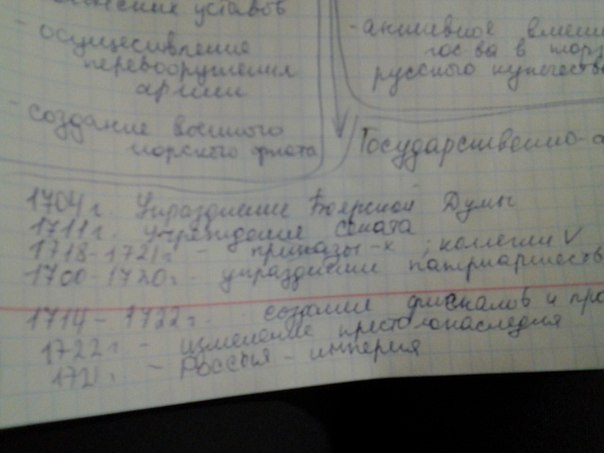 уставов
- осуществление
перевооружения
армии
- создание военного
морского флота
- активное
гос-ва в
русского купечества
Государственно-а
1704г. Упразднение Боярской Думы
1711г. учреждение Сената
1718-1721г. - приказы -х ; коллегии V
1700-1720г. - упразднение патриаршеств
1714 - 1722г. создание фискалов и про
1722г. - изменение престолонаследия
1721г. - Россия - империя